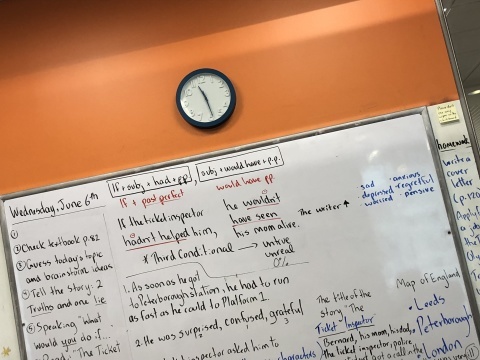 Wednesday, June 6th
①
② Check textbook p.82
③ Guess today's topic
and brainstorm ideas
④ Tell the story: 2
Truths and one lie
⑤ Speaking "What
would you do if...
"The Ticket
If + subj + had + pp, subj + would have + p.p.
If + past perfect would have pp.
If the ticket inspector
hadn't helped him,
he wouldn't
have seen
his mom alive.
* Third Conditional → untrue
unreal
0%
The writer ↑
sad anxious
depressed regretful
worried pensive
1. As soon as he got
to Peterborough station, he had to run
as fast as he could to Platform 1.
2. He was surprised, confused, grateful
1 2 3
inspector asked him to
The title of the
story: "The
Ticket Inspector"
Bernard, his mom, his dad,
the ticket inspector, police,
characters
Map of England
• Leeds
Peterborough
London
homework
write a
cover
letter
(p.120
Apply
a jo
the